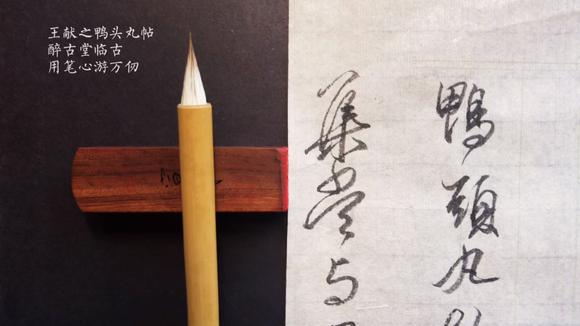 王献之鸭头丸帖
醉古堂临古
用笔心游万仞
鴨頭丸
集當与